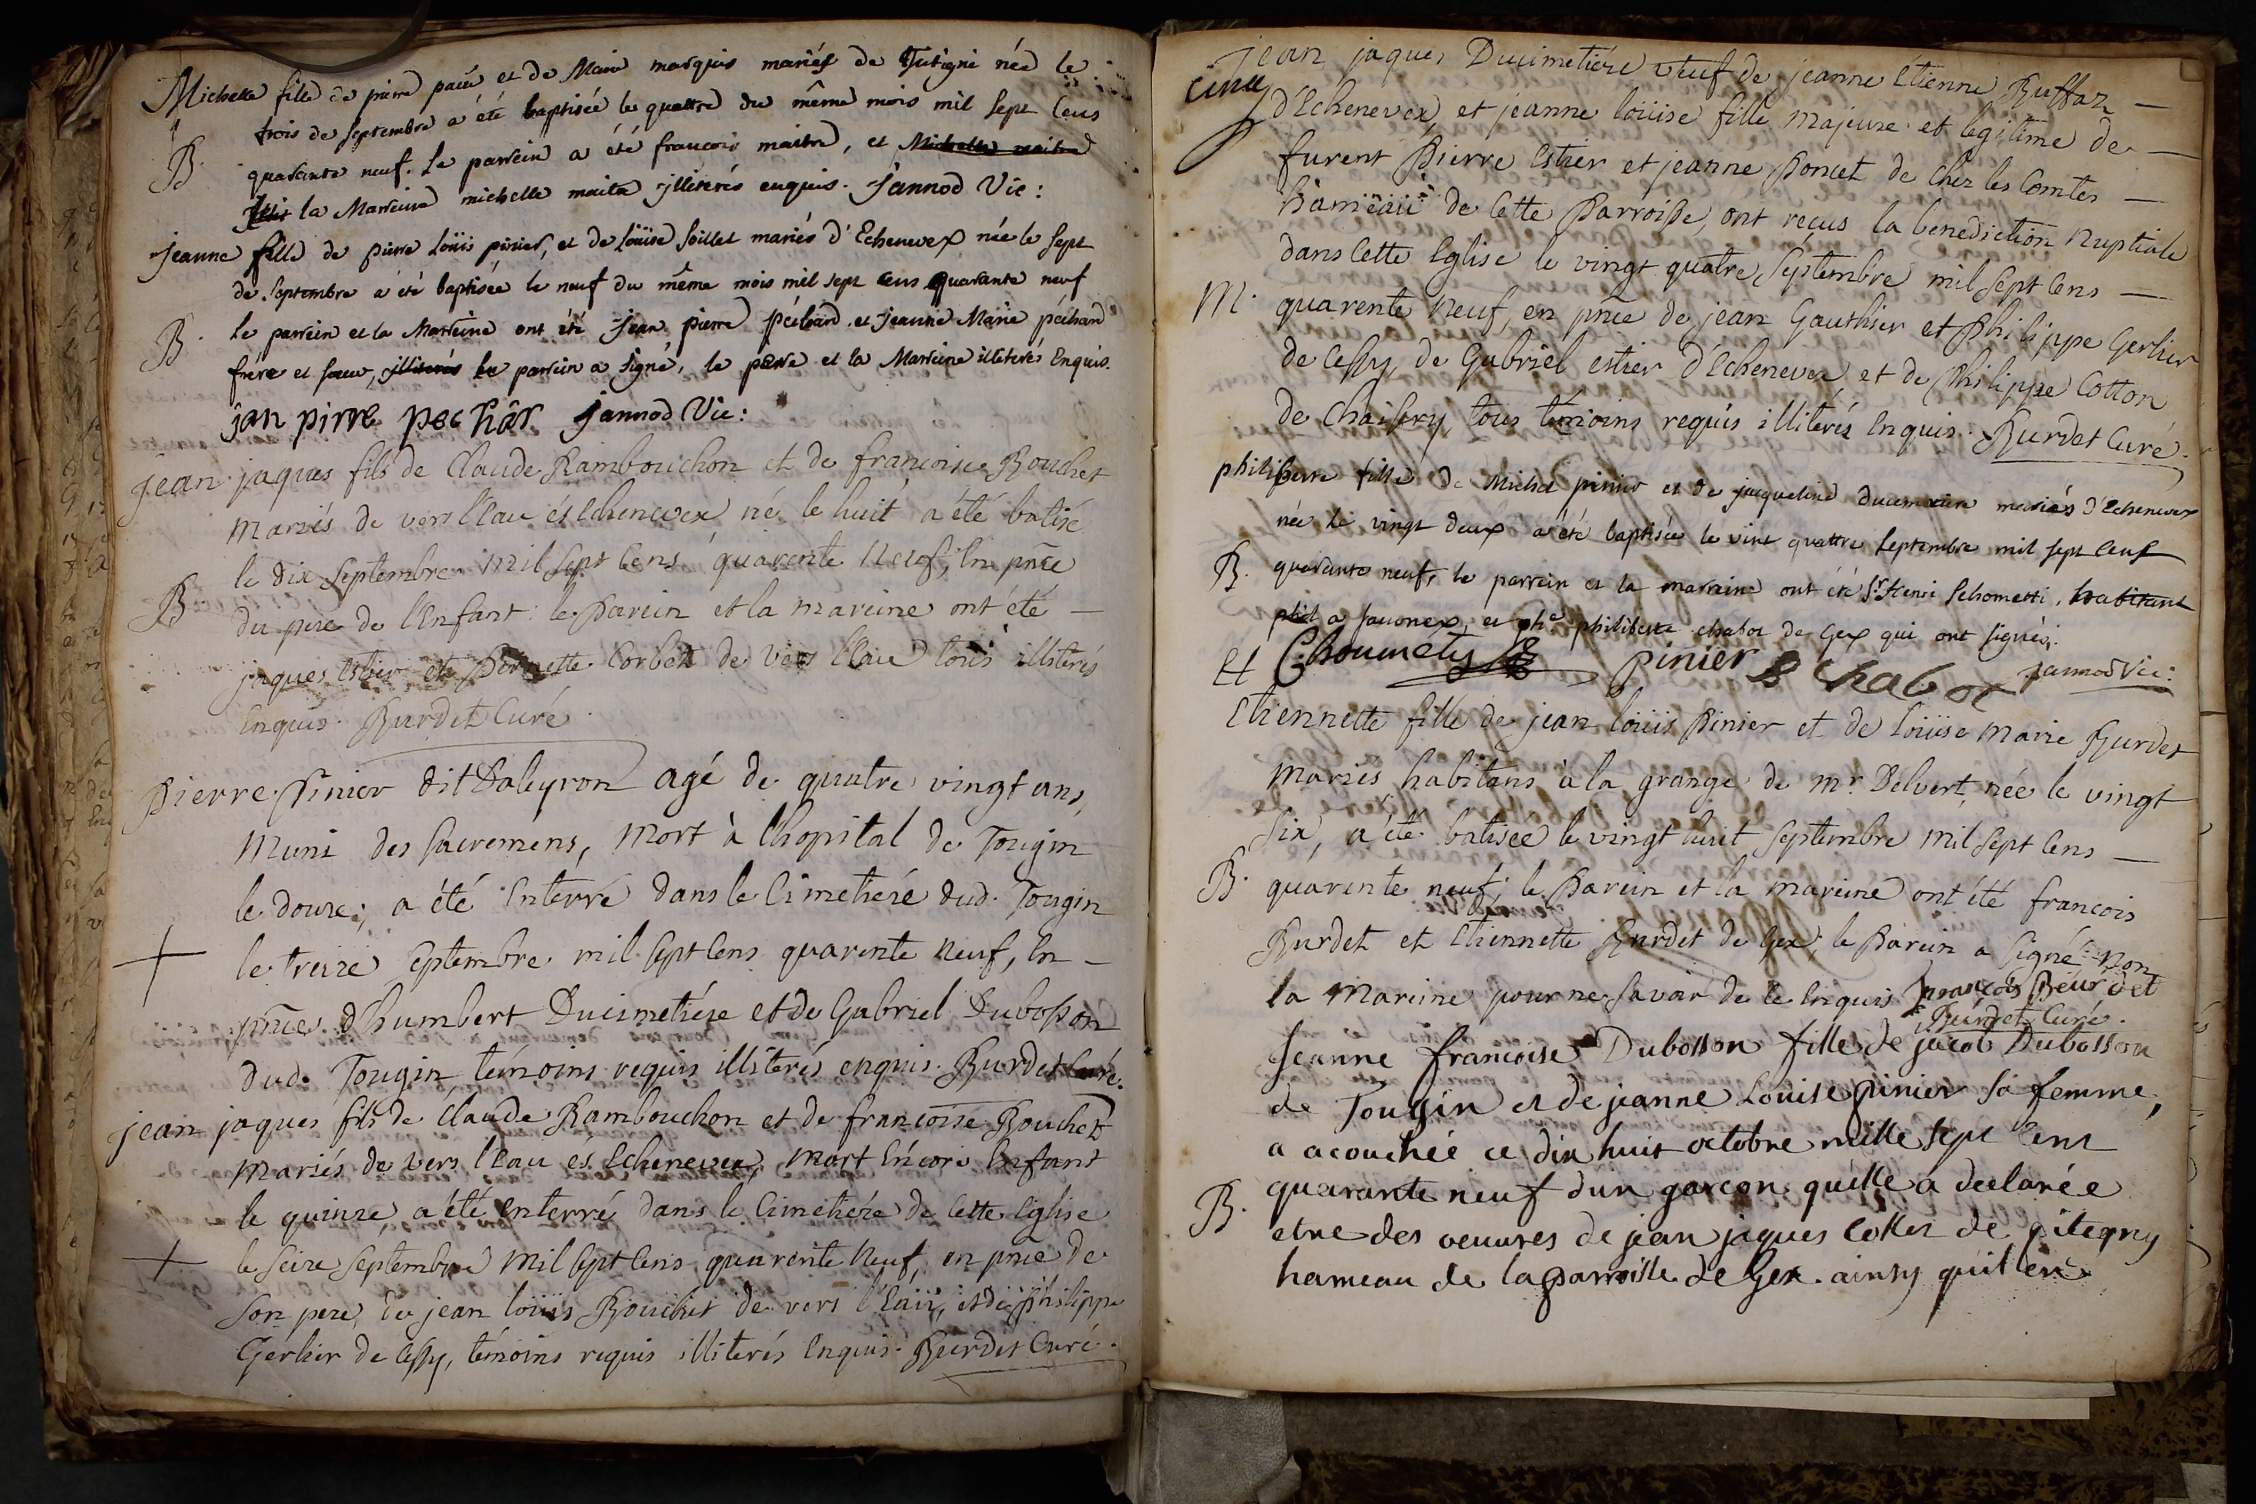 Michelle fille de pierre et de Marie marquis mariés de née le
trois de septembre a été baptisée le quattre du même mois mil sept cens
B. quarante neuf. Le parrein a été francois maitre, et Michelle maitre
la Marreine michelle maitre illiterés enquis. Jannod Vic:
Jeanne fille de pierre Loüis pinier, et de Loüise soillet mariés d'Echenevex née le sept
de septembre a été baptisée le neuf du même mois mil sept cens quarante neuf
B. le parrein et la Marreine ont été Jean pierre péchard et Jeanne Marie péchard
frére et soeur, illiterés le parrein a signé, le pere et la Marreine illiterés Enquis.
jan pirre pechar Jannod Vic:
Jean jaques fils de Claude Rambouchon et de francoise Bouchet
Mariés de vers l'Eau és Echenevex né le huit a été batisé
le dix septembre mil sept cens quarente Neuf, En pñce
B du pere de l'Enfant: le Parein et la mareine ont été —
jaques Estier et Pernette Corbet de vers l'Eau tous illiterés
Enquis. Burdet Curé.
Pierre Pinier dit Daleyron agé de quatre vingt ans,
Muni des sacremens, Mort à l'hopital de Tougin
le douze; a été Enterré dans le Cimetiére dud. Tougin
le treize septembre mil sept cens quarente Neuf, En —
pñces d'humbert Ducimetiére et de Gabriel Dubosson
dud. Tougin, témoins requis illiterés enquis. Burdet Curé.
jean jaques fils de Claude Rambouchon et de francoise Bouchet
Mariés de vers l'Eau és Echenevex, mort Encore Enfant
le quinze, a été enterré dans le Cimetiére de Cette Eglise
le seize septembre Mil sept Cens quarente Neuf, en pñce de
son pere, de jean loüis Bouchet de vers l'Eaü, et de philippe
Gerlier de Cessy, témoins requis illiterés Enquis. Burdet Curé.
Jean jaques Ducimetiére veuf de jeanne Etienne Buffaz —
d'Echenevex, et jeanne loüise fille majeure et legitime de —
furent Pierre Estier et jeanne Poncet de Chez les Comtes —
hameaü de Cette Parroisse, ont reçus la benediction Nuptiale
dans Cette Eglise le vingt quatre Septembre mil Sept Cens —
M. quarente Neuf, en pñce de jean Gauthier et Philippe Gerlier
de Cessy, de Gabriel estier d'Echenevex et de Philippe Cotton
de Chaisery, tous témoins requis illiterés Enquis. Burdet Curé.
philiberte fille de Michel pinier et de jacqueline mariés d'Echenevex
née le vingt deux a été baptisée le vint quattre septembre mil sept cens
B. quarante neuf, le parrein et la marreine ont été Sr. Henri Schometti, habitant
a sauonex, et philiberte chabot de Gex qui ont signés.
et Choumety pinier P Chabot Jannod Vic:
Etiennette fille de jean loüis Pinier et de loüise Marie Burdet
Mariés, habitans à la grange de Mr. Delvert, née le vingt
six, a été batisée le vingt huit septembre mil sept Cens —
B. quarente neuf; le Parein et la mareine ont été francois
Burdet et Etiennette Burdet de Gex; le Parein a signé Non
la Mareine pour ne savoir de ce Enquis françois Beurdet
Burdet Curé.
Jeanne francoise Dubosson fille de jacob Dubosson
de Tougin et de jeanne Louise pinier sa femme,
a acouchée ce dix huit octobre mille sept cent
quarante neuf d'un garcon qu'elle a declarée
B. etre des oeuvres de jean jaques Coller de pitegny
hameau de la parroisse de Gex. ainsy qu'il en